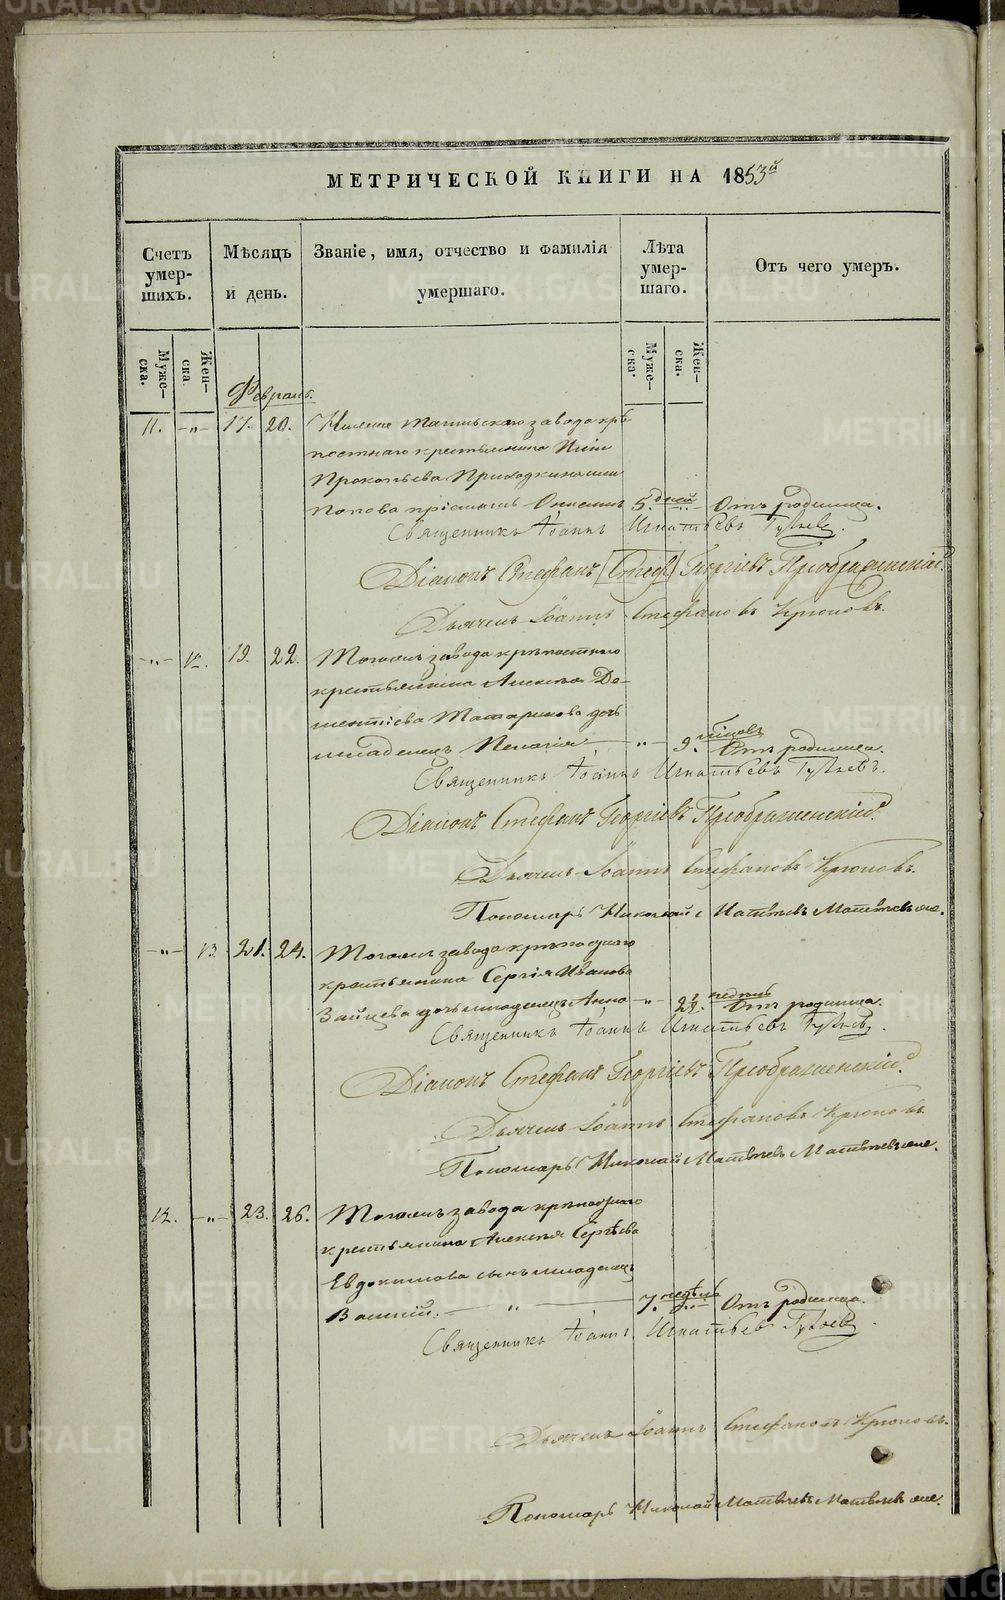 МЕТРИЧЕСКОЙ КНИГИ НА 1853й
Счетъ умер-шихъ.
Мѣсяцъ и день.
Званіе, имя, отчество и фамилія умершаго.
Лѣта умер-шаго.
Отъ чего умеръ.
Муже-ска.
Жен-ска
Муже-ска.
Жен-ска.
Февраль.
11. -„- 17. 20. Нижне Тагильскаго завода крѣ
постнаго крестьянина
Прокопьева
Попова 5. дней Отъ родимца.
Священникъ Іоаннъ Игнатьевъ
Діаконъ Стефанъ [Стеф] Георгіевъ Преображенскій.
Дьячекъ Іоаннъ Стефановъ Крюковъ.
-„- 12. 19. 22. Тогожъ завода крѣпостнаго
крестьянина Алексѣя До-
ментіева Татаринова дочь
младенецъ Пелагія -„- 9. мѣсяцъ Отъ родимца.
Священникъ Іоаннъ Игнатьевъ
Діаконъ Стефанъ Георгіевъ Преображенскій.
Дьячекъ Іоаннъ Стефановъ Крюковъ.
Пономарь Николай Матвѣевъ
-„- 13. 21. 24. Тогожъ завода крѣпостнаго
крестьянина Сергія Иванова
Зайцева дочь младенецъ Анна -„- недѣль Отъ родимца.
Священникъ Іоаннъ Игнатьевъ
Діаконъ Стефанъ Георгіевъ Преображенскій.
Дьячекъ Іоаннъ Стефановъ Крюковъ
Пономарь Николай Матвѣевъ
12. -„- 23. 26. Тогожъ завода крѣпостнаго
крестьянина Алексѣя Сергѣева
Евдокимова сынъ младенецъ
Василій. -„- 7. недѣль -„- Отъ родимца.
Священникъ Іоаннъ Игнатьевъ
Дьячекъ Іоаннъ Стефановъ Крюковъ.
Пономарь Николай Матвѣевъ
METRIKI.GASO-URAL.RU